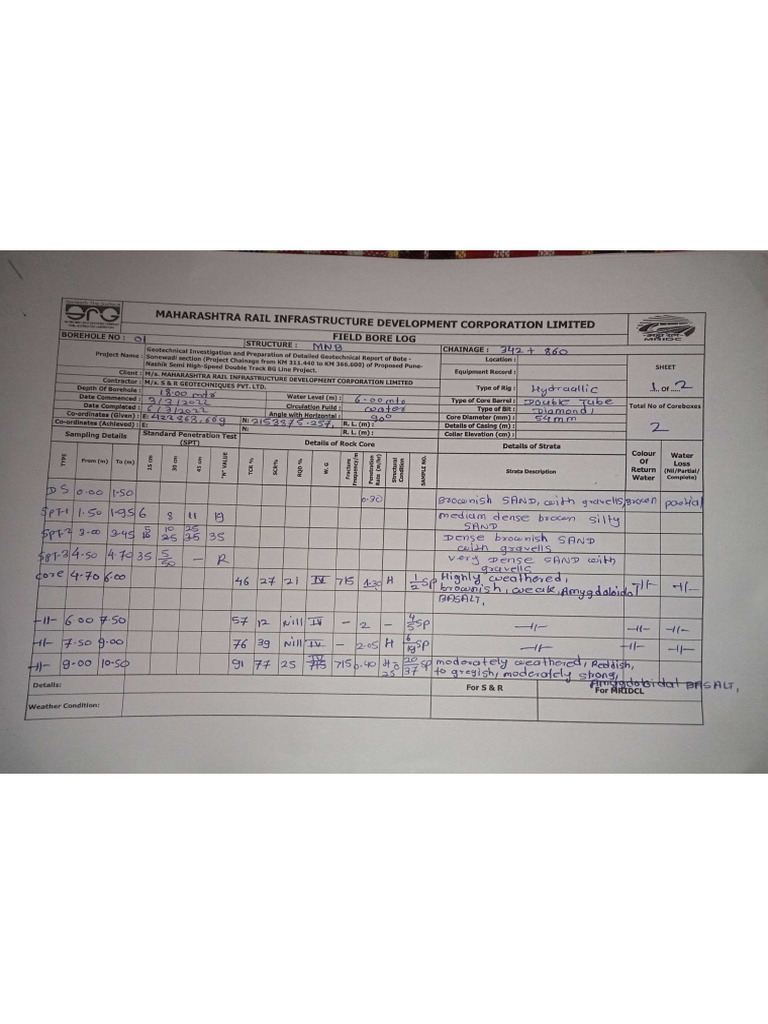 MAHARASHTRA RAIL INFRASTRUCTURE DEVELOPMENT CORPORATION LIMITED
SRG
MRIDC
BOREHOLE NO : 01
STRUCTURE : MNB
FIELD BORE LOG
CHAINAGE : 342 + 860
Project Name : Geotechnical Investigation and Preparation of Detailed Geotechnical Report of Bote - Sonewadi section (Project Chainage from KM 311.440 to KM 366.600) of Proposed Pune-Nashik Semi High-Speed Double Track BG Line Project.
Location :
Equipment Record :
SHEET
1 of 2
Client : M/s. MAHARASHTRA RAIL INFRASTRUCTURE DEVELOPMENT CORPORATION LIMITED
Contractor : M/s. S & R GEOTECHNIQUES PVT. LTD.
Type of Rig : Hydraallic
Depth Of Borehole : 18.00 mtr
Water Level (m) : 6.00 mtr
Type of Core Barrel : Double Tube
Total No of Coreboxes
2
Date Commenced : 3/3/2022
Circulation Fulid : water
Type of Bit : Diamond,
Date Completed : 6/3/2022
Angle with Horizontal : 90°
Core Diameter (mm) : 54mm
Co-ordinates (Given) : E: 422863.669
N: 2153375.257,
R. L. (m) :
Details of Casing (m) :
Co-ordinates (Achieved) : E:
N:
R. L. (m) :
Collar Elevation (cm) :
Sampling Details
Standard Penetration Test (SPT)
Details of Rock Core
Details of Strata
Colour Of Return Water
Water Loss (Nil/Partial/Complete)
TYPE From (m) To (m) 15 cm 30 cm 45 cm "N" VALUE TCR % SCR% RQD % W. G Fracture Frequency/m Penetration Rate (m/hr) Structural Condition SAMPLE NO. Strata Description
DS 0.00 1.50 0.30 Brownish SAND, with gravells, brown partial
SPT-1 1.50 1.95 6 8 11 19 medium dense brown silty SAND
SPT-2 3.00 3.45 10 25 35 Dense brownish SAND with gravells
SPT-3 4.50 4.70 35 5/50 - R very Dense SAND with gravells
core 4.70 6.00 46 27 21 IV 715 1.30 H 1/2 SP Highly weathered, brownish, weak, Amygdoloidal BASALT, -11- -11-
-11- 6.00 7.50 57 12 Nill IV - 2 - 4/5 SP -11- -11- -11-
-11- 7.50 9.00 76 39 Nill IV - 2.05 H 6/19 SP -11- -11- -11-
-11- 9.00 10.50 91 77 25 715 0.40 H 20/37 SP moderately weathered, Reddish, to greyish, moderately strong, Amygdoloidal BASALT,
Details:
For S & R
For MRIDCL
Weather Condition: